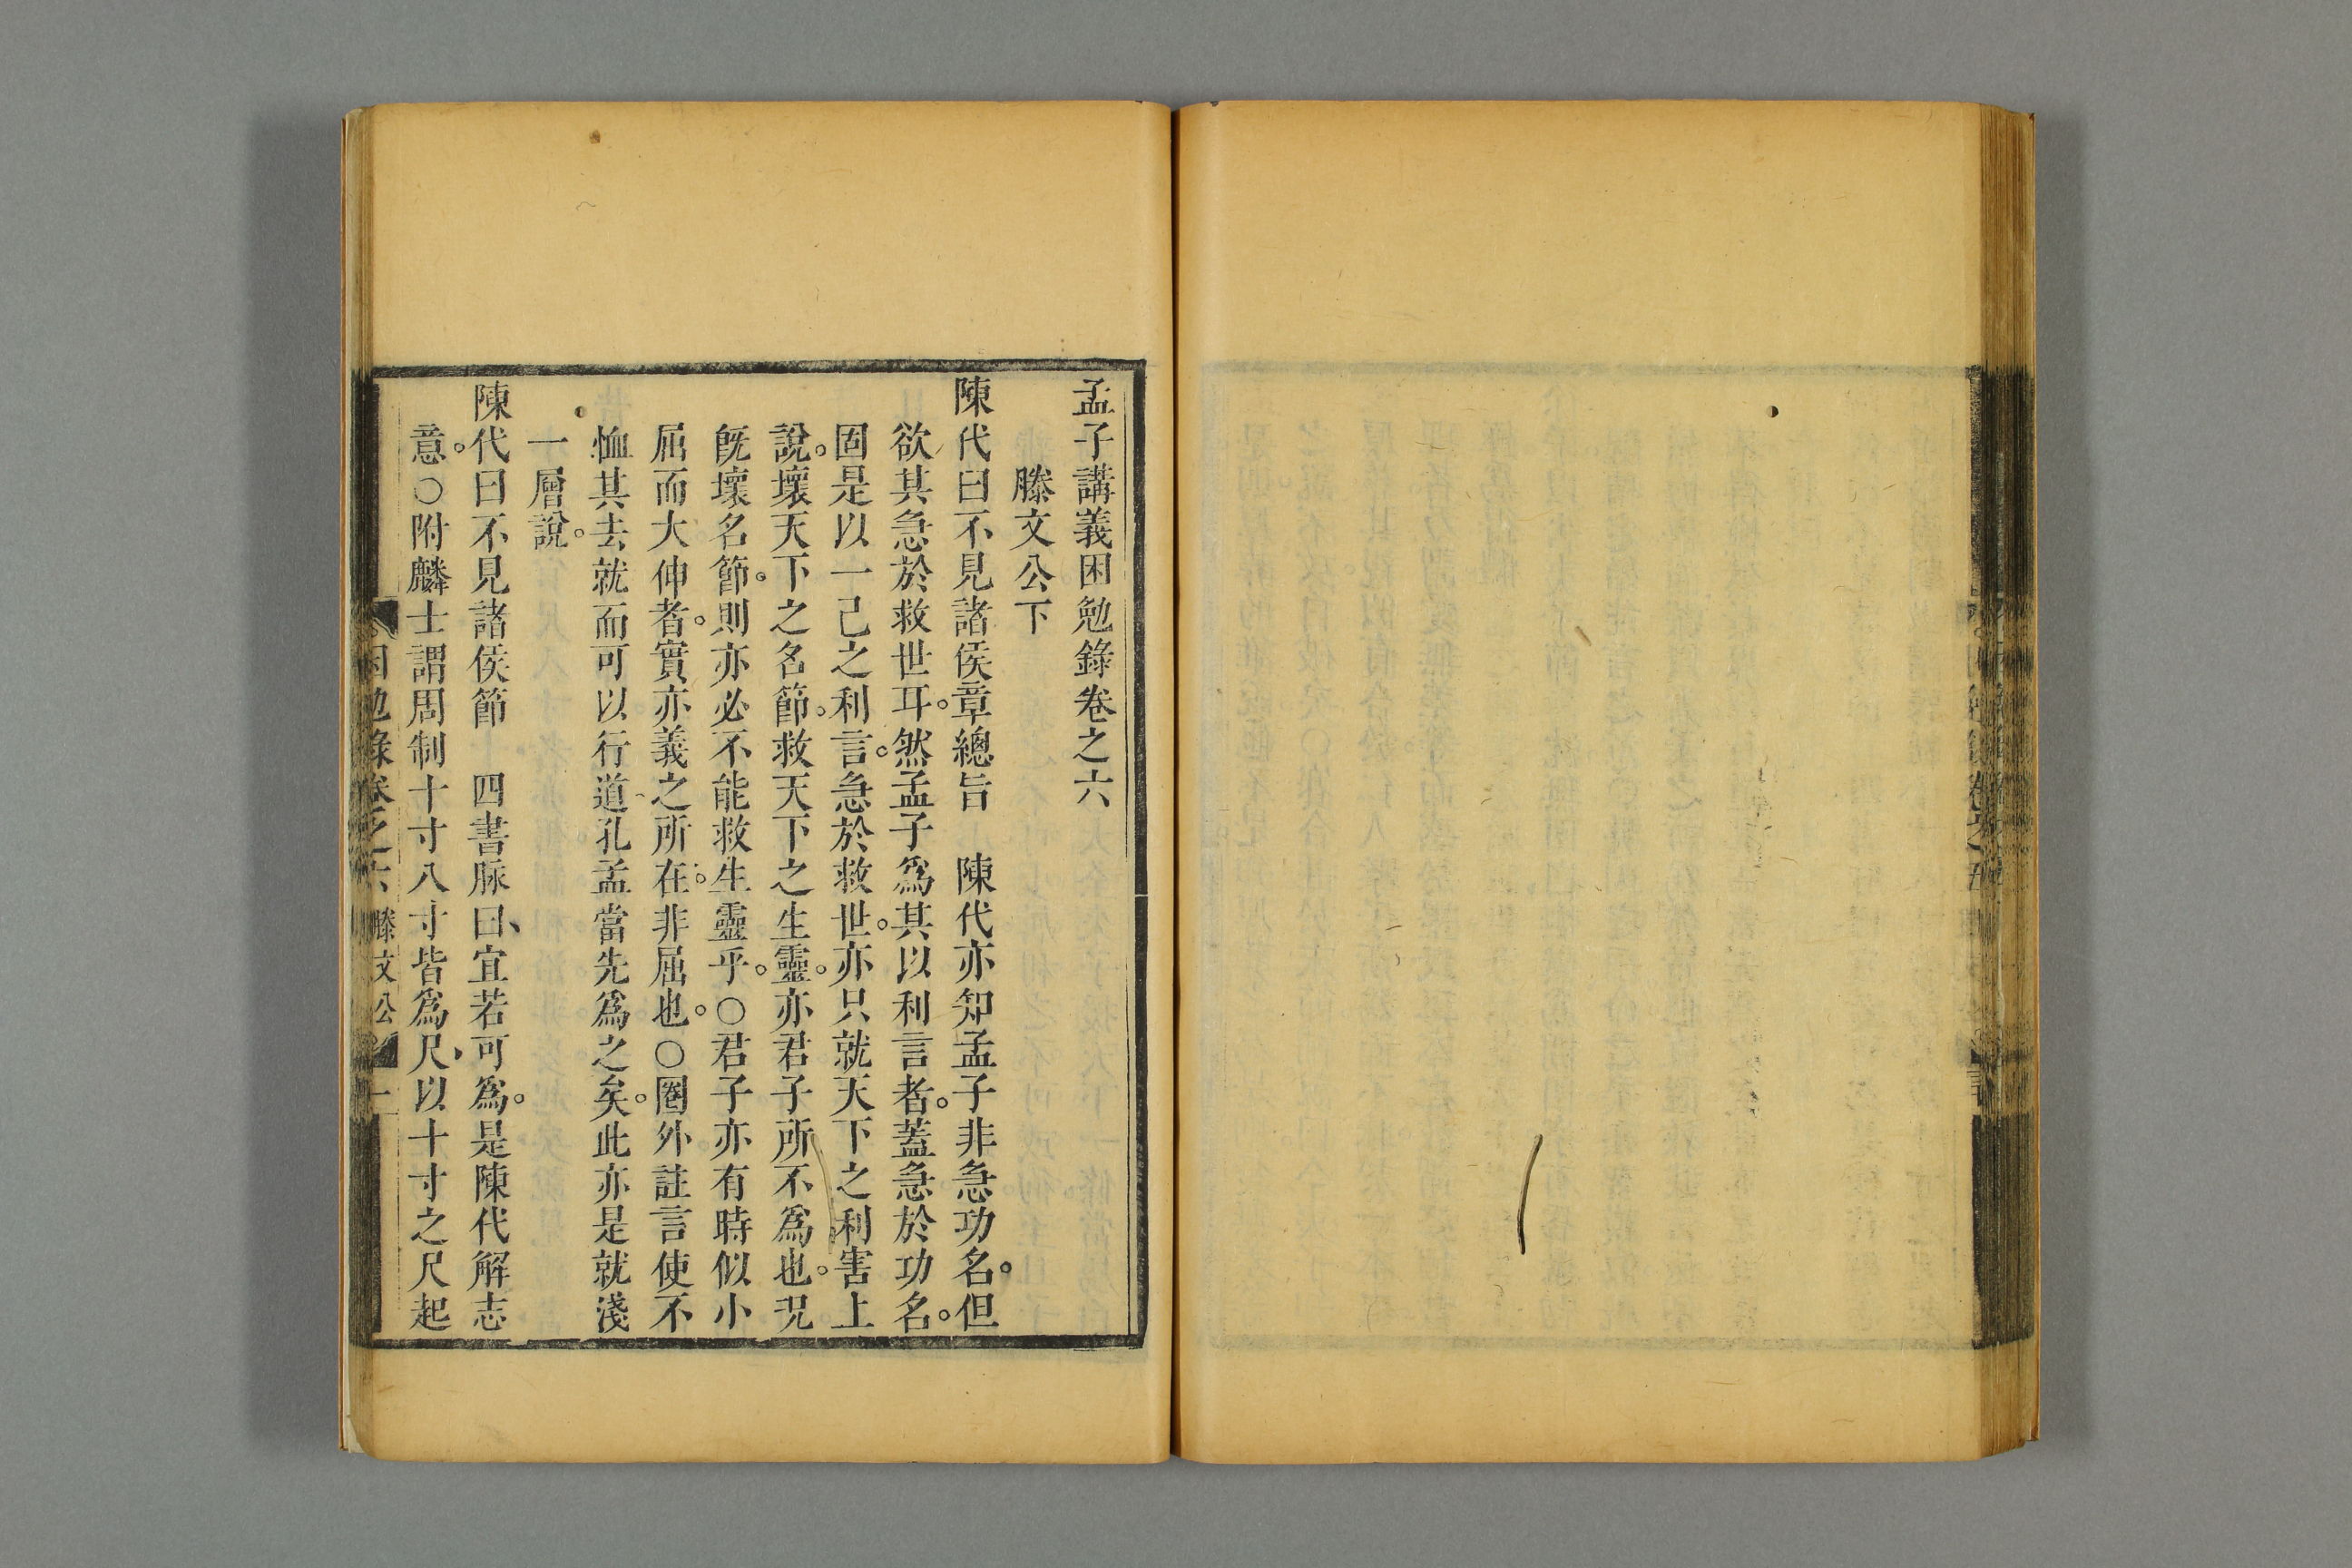 孟子講義困勉錄卷之六
滕文公下
陳代曰不見諸侯章總旨　陳代亦知孟子非急功名。但
欲其急於救世耳。然孟子爲其以利言者。蓋急於功名。
固是以一己之利言。急於救世。亦只就天下之利害上
說。壞天下之名節。救天下之生靈。亦君子所不爲也。况
既壞名節。則亦必不能救生靈乎。○君子亦有時似小
屈而大伸者。實亦義之所在。非屈也。○圈外註言使不
恤其去就而可以行道孔孟當先爲之矣。此亦是就淺
一層說。
陳代曰不見諸侯節　四書脉曰、宜若可爲。是陳代解志
意。○附麟士謂周制十寸八寸皆爲尺、以十寸之尺起
困勉錄卷之六　滕文公　一